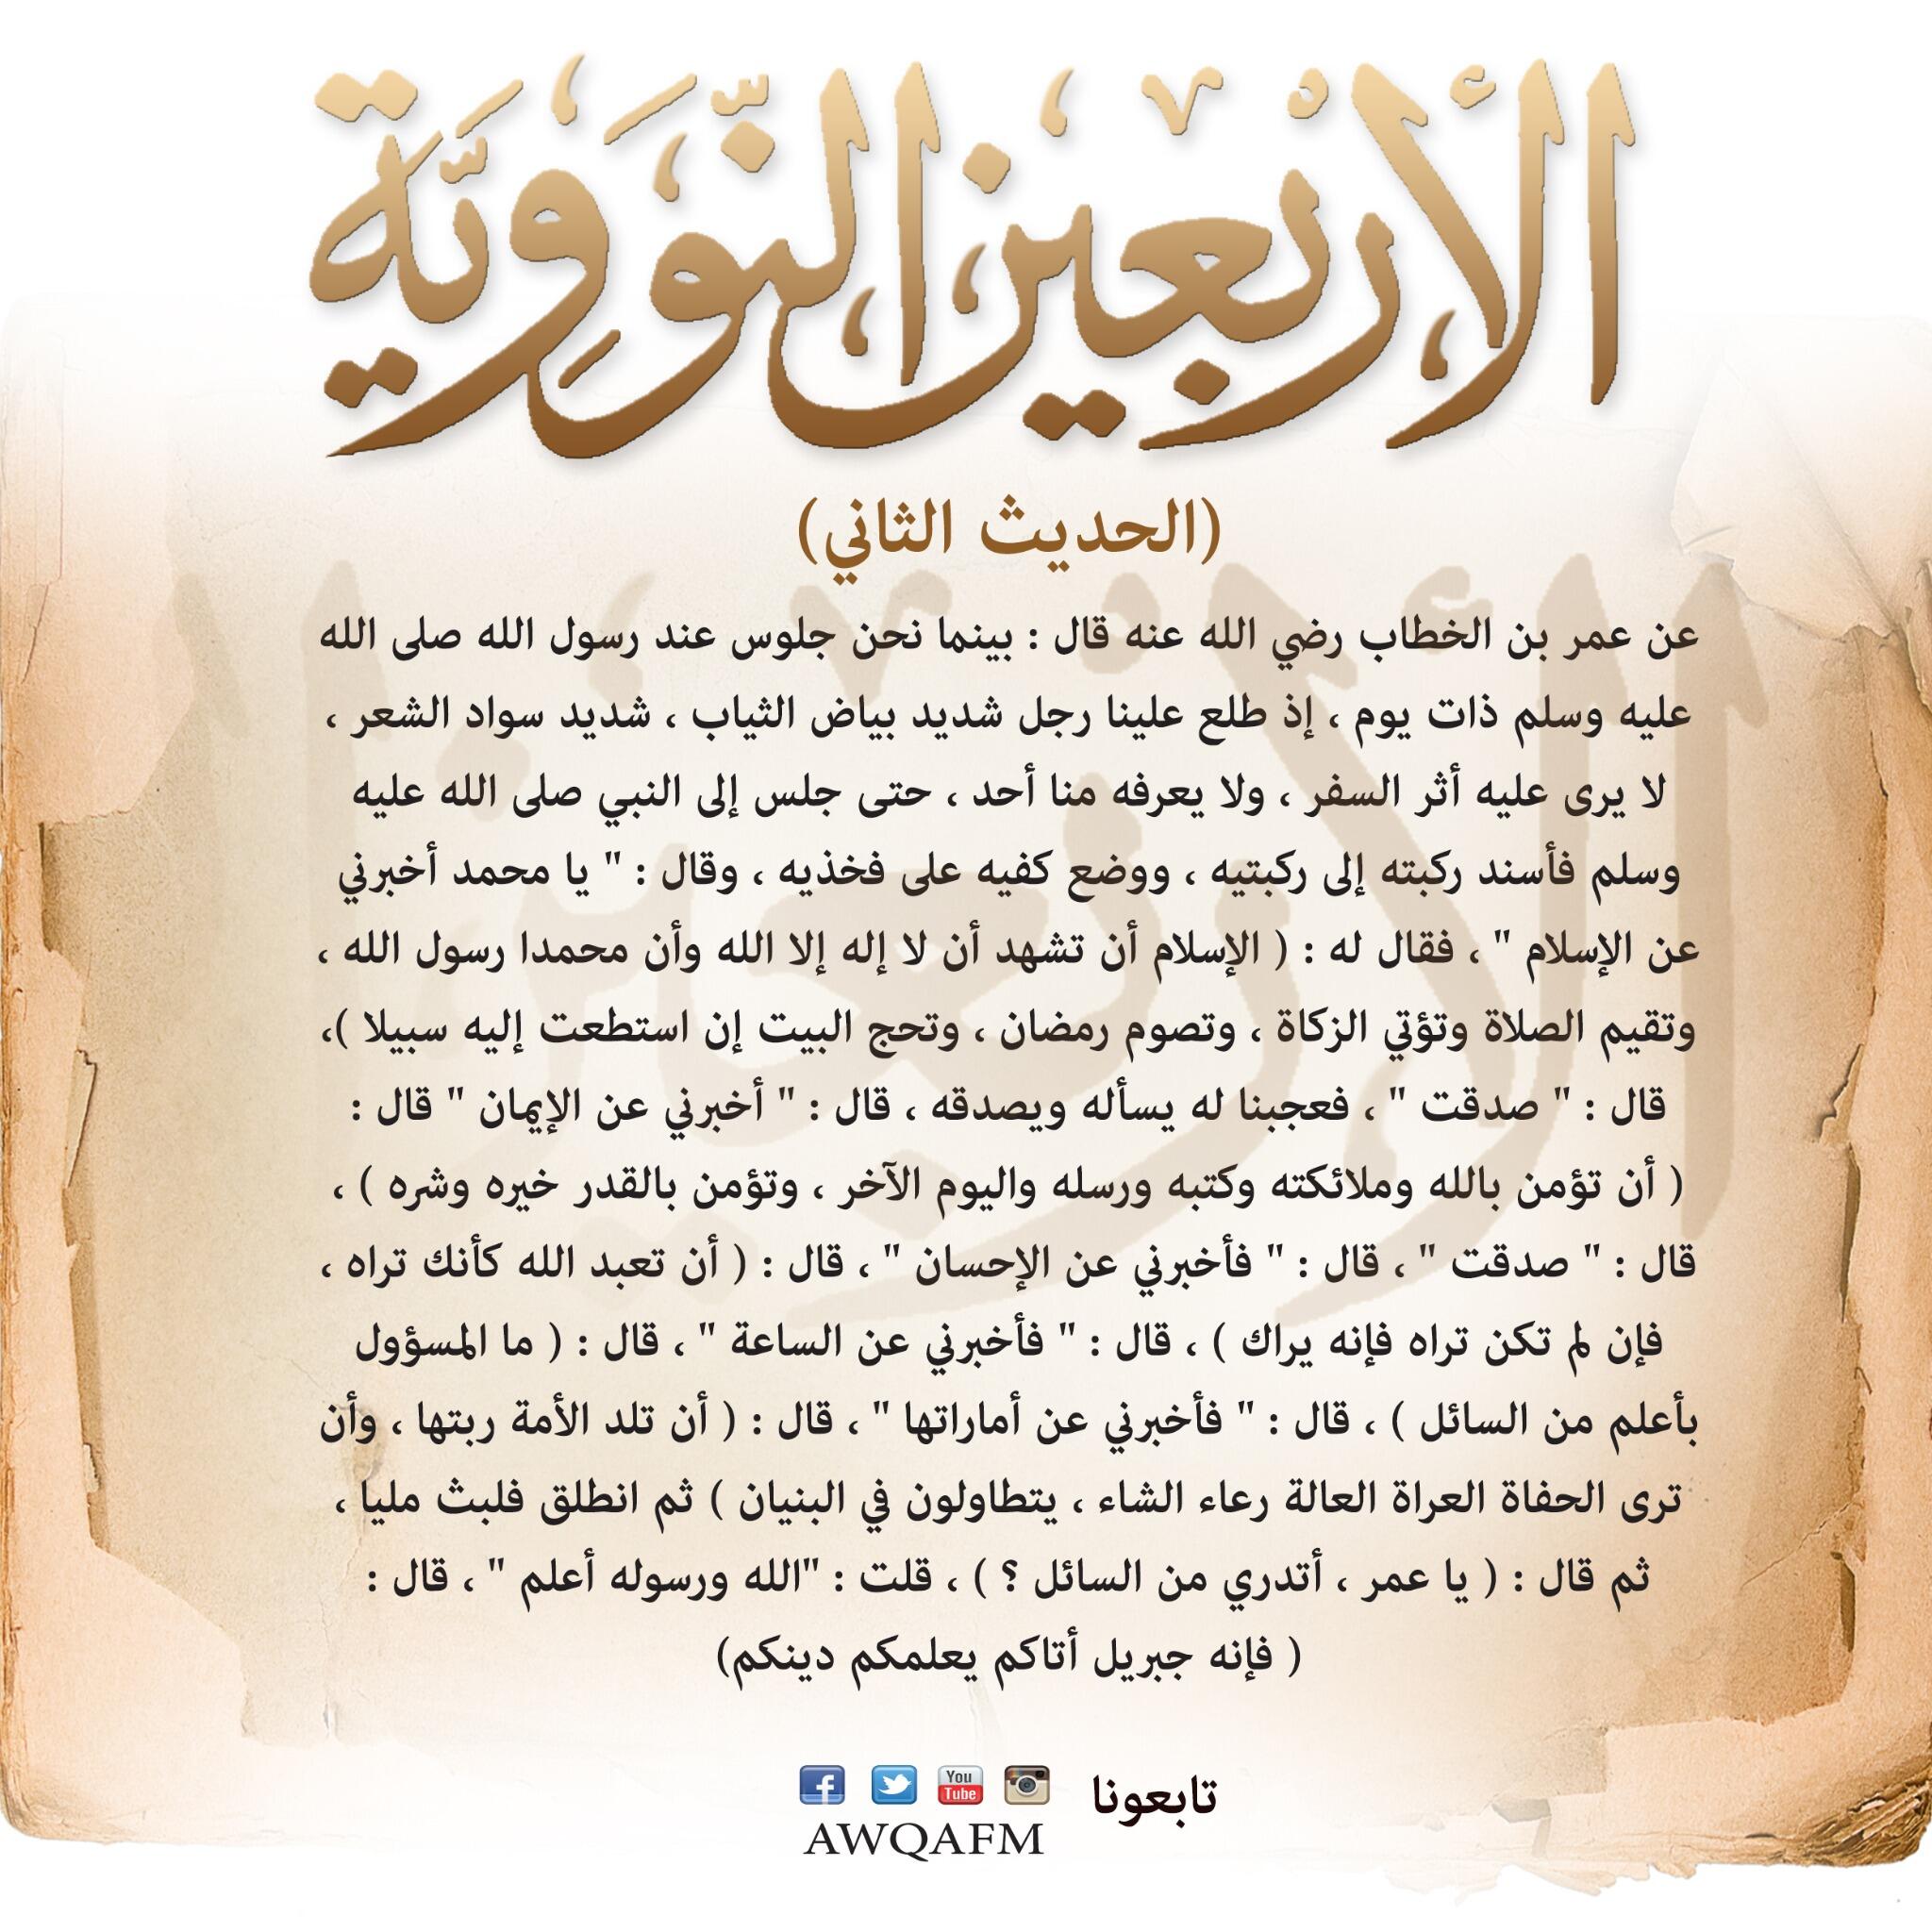 الأَرْبَعِينَ النَّوَوِيَّة
(الحديث الثاني)
عن عمر بن الخطاب رضي الله عنه قال : بينما نحن جلوس عند رسول الله صلى الله
عليه وسلم ذات يوم ، إذ طلع علينا رجل شديد بياض الثياب ، شديد سواد الشعر ،
لا يرى عليه أثر السفر ، ولا يعرفه منا أحد ، حتى جلس إلى النبي صلى الله عليه
وسلم فأسند ركبته إلى ركبتيه ، ووضع كفيه على فخذيه ، وقال : " يا محمد أخبرني
عن الإسلام " ، فقال له : ( الإسلام أن تشهد أن لا إله إلا الله وأن محمدا رسول الله ،
وتقيم الصلاة وتؤتي الزكاة ، وتصوم رمضان ، وتحج البيت إن استطعت إليه سبيلا )،
قال : " صدقت " ، فعجبنا له يسأله ويصدقه ، قال : " أخبرني عن الإيمان " قال :
( أن تؤمن بالله وملائكته وكتبه ورسله واليوم الآخر ، وتؤمن بالقدر خيره وشره ) ،
قال : " صدقت " ، قال : " فأخبرني عن الإحسان " ، قال : ( أن تعبد الله كأنك تراه ،
فإن لم تكن تراه فإنه يراك ) ، قال : " فأخبرني عن الساعة " ، قال : ( ما المسؤول
بأعلم من السائل ) ، قال : " فأخبرني عن أماراتها " ، قال : ( أن تلد الأمة ربتها ، وأن
ترى الحفاة العراة العالة رعاء الشاء ، يتطاولون في البنيان ) ثم انطلق فلبث مليا ،
ثم قال : ( يا عمر ، أتدري من السائل ؟ ) ، قلت : "الله ورسوله أعلم " ، قال :
( فإنه جبريل أتاكم يعلمكم دينكم)
تابعونا
You Tube
AWQAFM